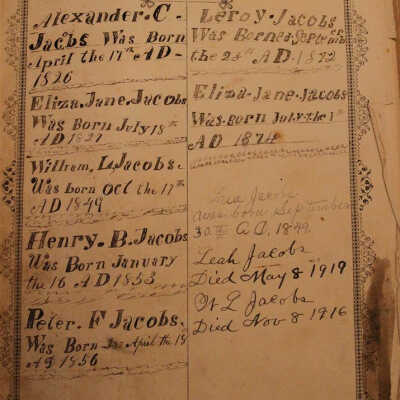 Alexander. C.
Jacobs Was Born
April the 17th AD
1826
Eliza. Jane. Jacobs
Was Born July 18th
AD 1827
William, L, Jacobs.
Was born Oct the 17th
AD 1849
Henry. B. Jacobs
Was Born January
the 16 AD 1853
Peter. F Jacobs.
Was Born April the 18
AD 1856
Leroy. Jacobs
Was Borned September
the AD. 1872
Eliza-Jane. Jacobs
Was. born July. the 1st
AD 1874
Jacobs
was born September
30th A.D. 1849
Leah Jacobs
Died May 8 1919
W L Jacobs
Died Nov 8 1916